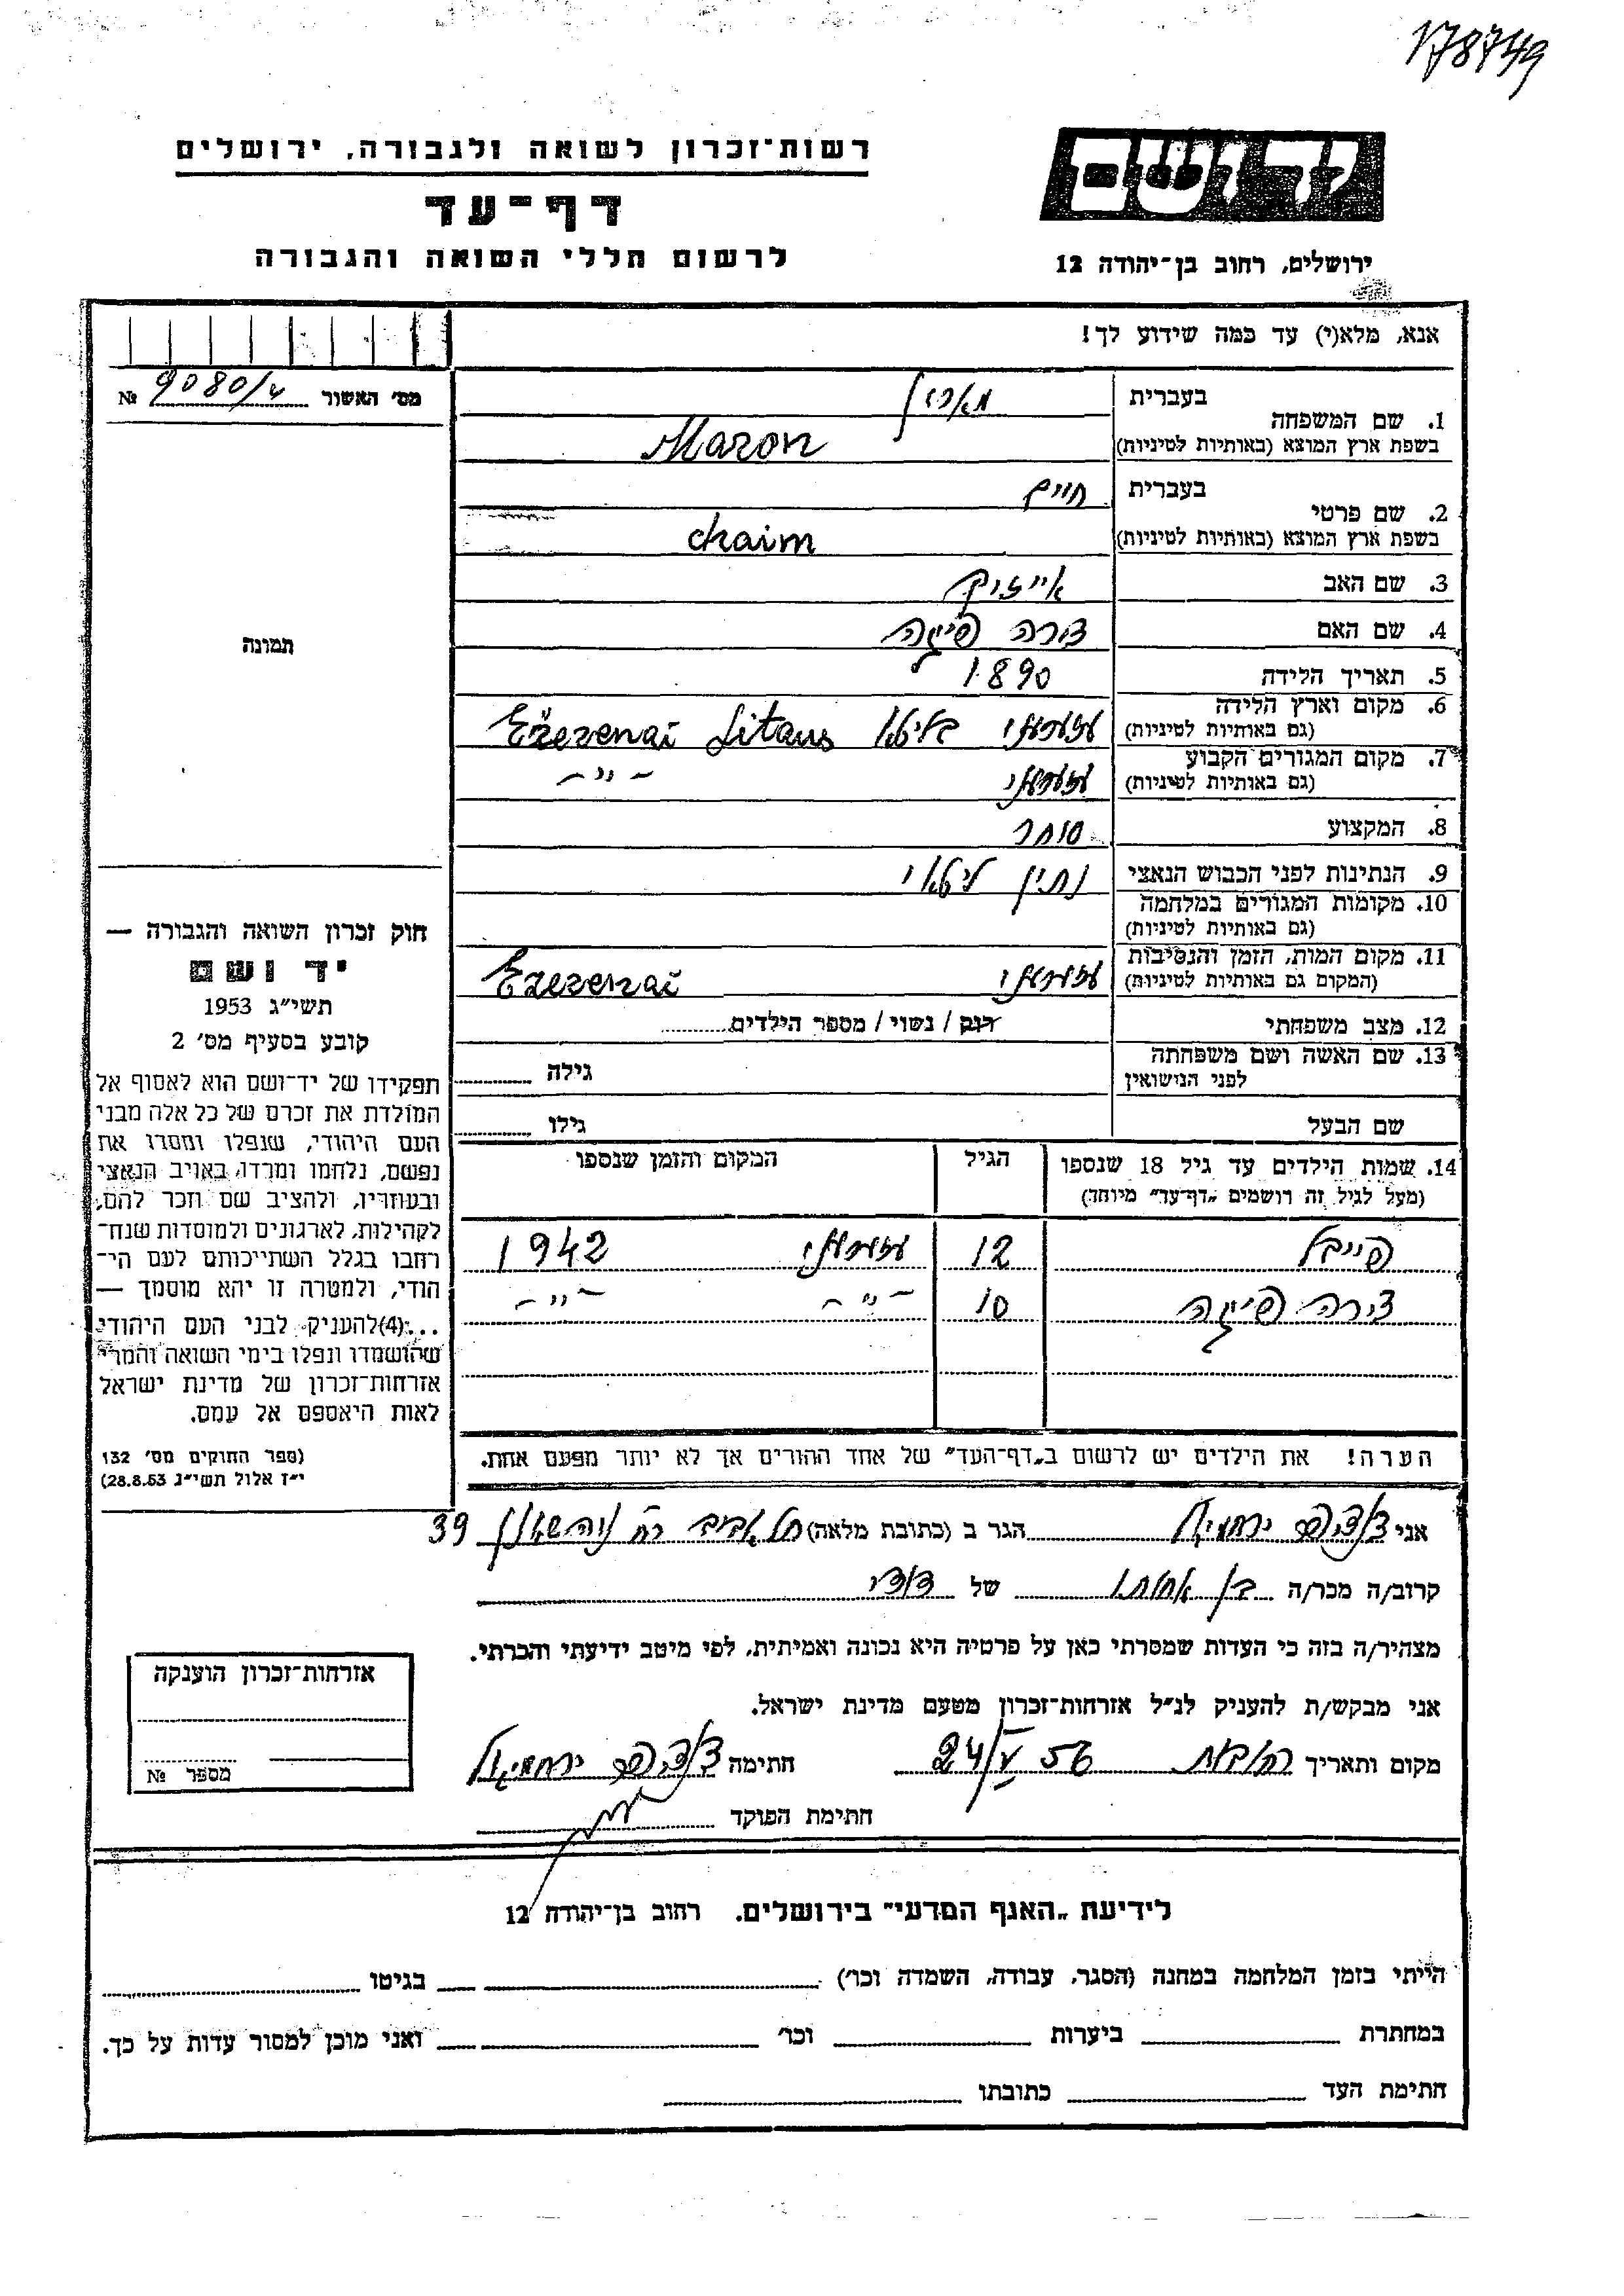 178749
רשות־זכרון לשואה ולגבורה, ירושלים
דף־עד
לרשום חללי השואה והגבורה
יד ושם
ירושלים, רחוב בן־יהודה 12
אנא, מלא(י) עד כמה שידוע לך!
מס׳ האשור 9080/4 №
תמונה
1. שם המשפחה
בעברית
בשפת ארץ המוצא (באותיות לטיניות)
Maron
2. שם פרטי
בעברית חיים
בשפת ארץ המוצא (באותיות לטיניות)
chaim
3. שם האב אייזיק
4. שם האם פיגה
5. תאריך הלידה 1890
6. מקום וארץ הלידה
(גם באותיות לטיניות)
בליטא Ežerenai Litaus
7. מקום המגורים הקבוע
(גם באותיות לטיניות)
- " -
8. המקצוע סוחר
9. הנתינות לפני הכבוש הנאצי נתין ליטאי
10. מקומות המגורים במלחמה
(גם באותיות לטיניות)
11. מקום המות, הזמן והנסיבות
(המקום גם באותיות לטיניות)
Ezerenai
12. מצב משפחתי רוק / נשוי / מספר הילדים
13. שם האשה ושם משפחתה
לפני הנשואין גילה
שם הבעל גילו
14. שמות הילדים עד גיל 18 שנספו
(מעל לגיל זה רושמים „דף־עד״ מיוחד)
הגיל
המקום והזמן שנספו
פייבל 12 1942
פיגה 10 - " - - " -
הערה! את הילדים יש לרשום ב„דף־העד״ של אחד ההורים אך לא יותר מפעם אחת.
חוק זכרון השואה והגבורה —
יד ושם
תשי״ג 1953
קובע בסעיף מס׳ 2
תפקידו של יד־ושם הוא לאסוף אל
המולדת את זכרם של כל אלה מבני
העם היהודי, שנפלו ומסרו את
נפשם, נלחמו ומרדו באויב הנאצי
ובעוזריו, ולהציב שם וזכר להם,
לקהילות, לארגונים ולמוסדות שנח־
רחבו בגלל השתייכותם לעם הי־
הודי, ולמטרה זו יהא מוסמך —
...(4)להעניק לבני העם היהודי
שהושמדו ונפלו בימי השואה והמרי
אזרחות־זכרון של מדינת ישראל
לאות היאספם אל עמם.
(ספר החוקים מס׳ 132
י״ז אלול תשי״ג 28.8.53)
אני ירחמיאל הגר ב (כתובת מלאה) תל אביב רח 39
קרוב/ה מכר/ה בן אחותו של דודי
מצהיר/ה בזה כי העדות שמסרתי כאן על פרטיה היא נכונה ואמיתית, לפי מיטב ידיעתי והכרתי.
אני מבקש/ת להעניק לנ״ל אזרחות־זכרון מטעם מדינת ישראל.
מקום ותאריך רחובות 24/V 56 חתימה ירחמיאל
חתימת הפוקד
אזרחות־זכרון הוענקה
מספר №
לידיעת „האגף המדעי״ בירושלים. רחוב בן־יהודה 12
הייתי בזמן המלחמה במחנה (הסגר, עבודה, השמדה וכו׳) בגיטו
במחתרת ביערות וכו׳ ואני מוכן למסור עדות על כך.
חתימת העד כתובתו